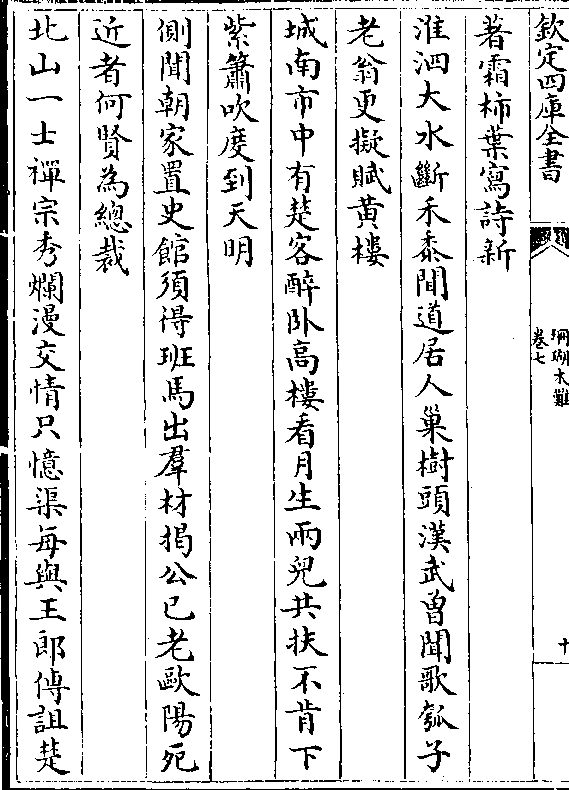 欽定四庫全書
珊瑚木難
卷七
十
著霜柿葉寫詩新
淮泗大水斷禾黍聞道居人巢樹頭漢武曽聞歌瓠子
老翁更擬賦黃樓
城南市中有楚客醉卧高樓看月生兩兒共扶不肯下
紫簫吹度到天明
側聞朝家置史館須得班馬出羣材揭公已老歐陽死
近者何賢為總裁
北山一士禪宗秀爛漫交情只憶渠每與王郎傳詛楚